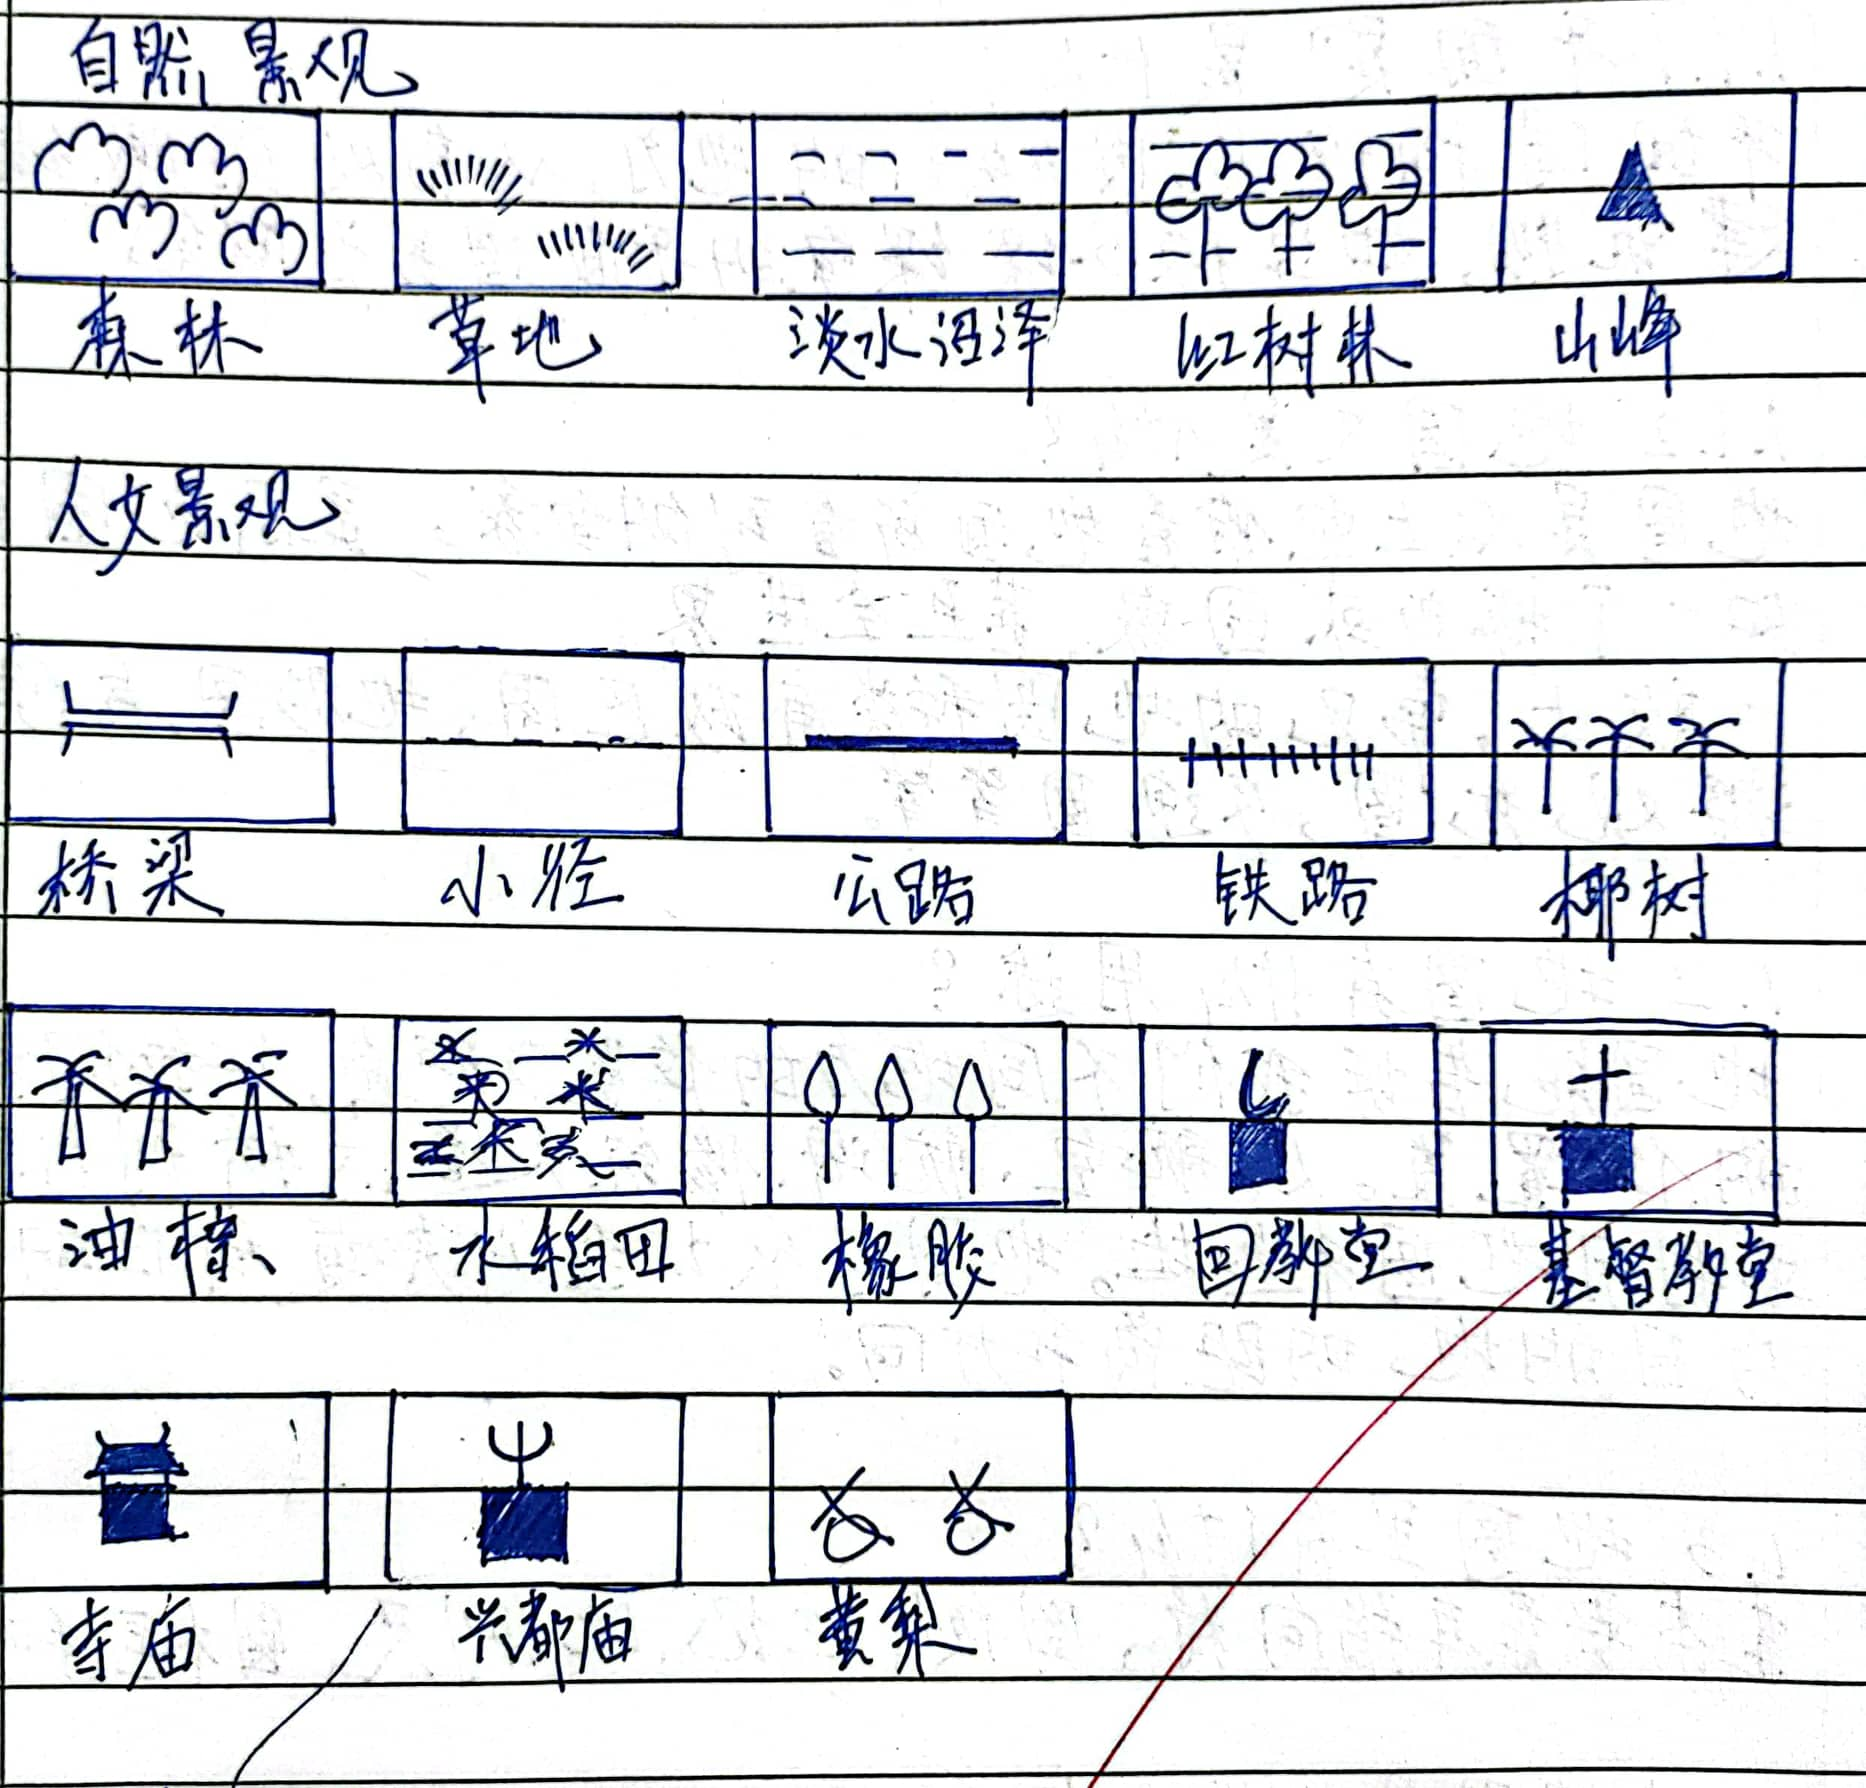 自然景观
森林 草地 淡水沼泽 红树林 山峰
人文景观
桥梁 小径 公路 铁路 椰树
油棕 水稻田 橡胶 回教堂 基督教堂
寺庙 兴都庙 黄梨